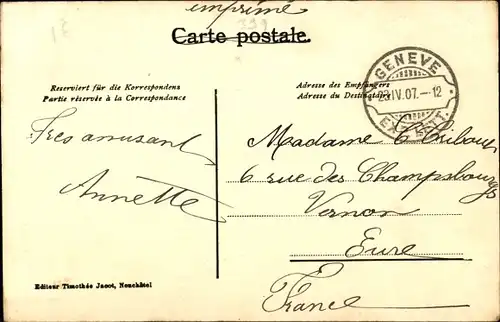 imprimé
Carte postale.
Reserviert für die Korrespondenz
Partie réservée à la Correspondance
Adresse des Empfängers
Adresse du Destinataire
GENEVE
23.IV.07.–12
EXP. LETT.
Très amusant
Annette
Madame
6 rue des Champsbourgs
Vernon
Eure
France
Editeur Timothée Jacot, Neuchâtel